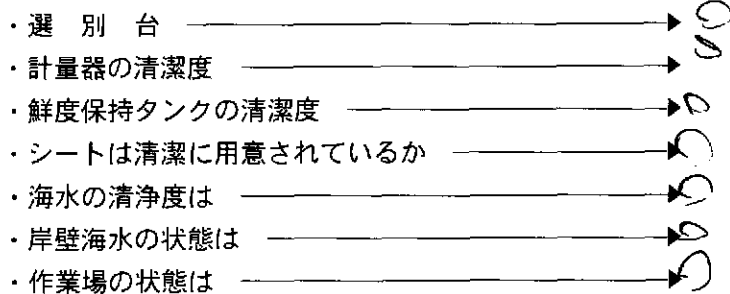 ・選 別 台 → ○
・計量器の清潔度 → ○
・鮮度保持タンクの清潔度 → ○
・シートは清潔に用意されているか → ○
・海水の清浄度は → ○
・岸壁海水の状態は → ○
・作業場の状態は → ○